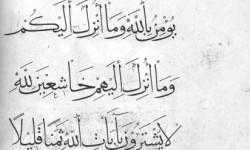 يؤمن بالله وما أنزل اليكم
وما أنزل اليهم خاشعين لله
لا يشترون بايات الله ثمنا قليلا